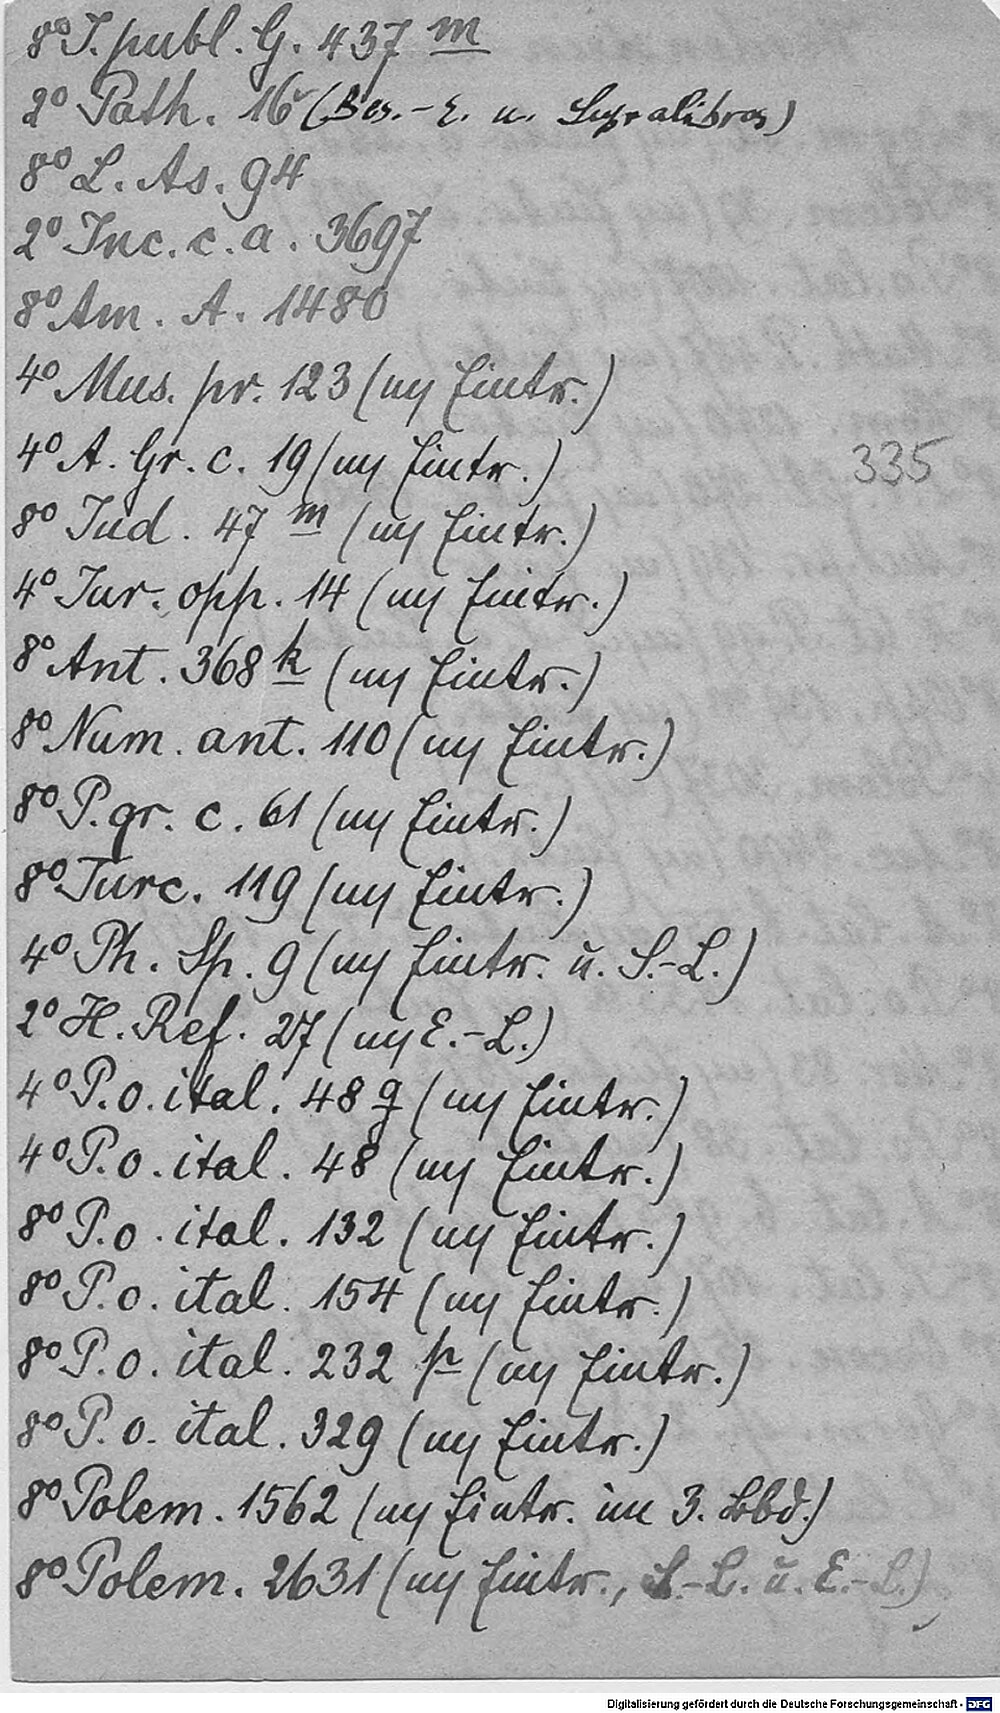 8° J. publ. G. 437 m
2° Path. 16 (Bes.-E. u. Supralibros)
8° L. As. 94
2° Inc. c. a. 3697
8° Am. A. 1480
4° Mus. pr. 123 (m Eintr.)
4° A. Gr. c. 19 (m Eintr.)
335
8° Jud. 47 m (m Eintr.)
4° Jur. opp. 14 (m Eintr.)
8° Ant. 368 k (m Eintr.)
8° Num. ant. 110 (m Eintr.)
8° P. gr. c. 61 (m Eintr.)
8° Turc. 119 (m Eintr.)
4° Ph. Sp. 9 (m Eintr. u. S.-L.)
2° H. Ref. 27 (m E.-L.)
4° P. o. ital. 48 g (m Eintr.)
4° P. o. ital. 48 (m Eintr.)
8° P. o. ital. 132 (m Eintr.)
8° P. o. ital. 154 (m Eintr.)
8° P. o. ital. 232 p (m Eintr.)
8° P. o. ital. 329 (m Eintr.)
8° Polem. 1562 (m Eintr. im 3. Bbd.)
8° Polem. 2631 (m Eintr., S.-L. u. E.-L.)
Digitalisierung gefördert durch die Deutsche Forschungsgemeinschaft - DFG